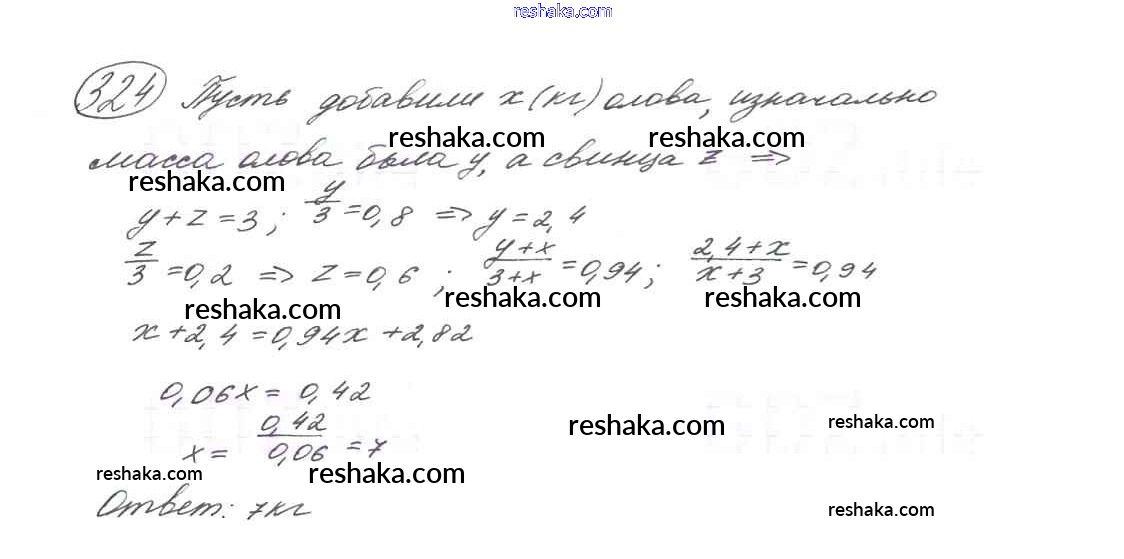 reshaka.com
324 Пусть добавили x (кг) олова, изначально
reshaka.com reshaka.com
масса олова была y, а свинца z =>
reshaka.com
y + z = 3 ; y/3 = 0,8 => y = 2,4
z/3 = 0,2 => z = 0,6 ; (y+x)/(3+x) = 0,94 ; (2,4+x)/(x+3) = 0,94
reshaka.com reshaka.com reshaka.com
x + 2,4 = 0,94x + 2,82
0,06x = 0,42
reshaka.com reshaka.com
x = 0,42/0,06 = 7
reshaka.com reshaka.com
Ответ: 7кг
reshaka.com